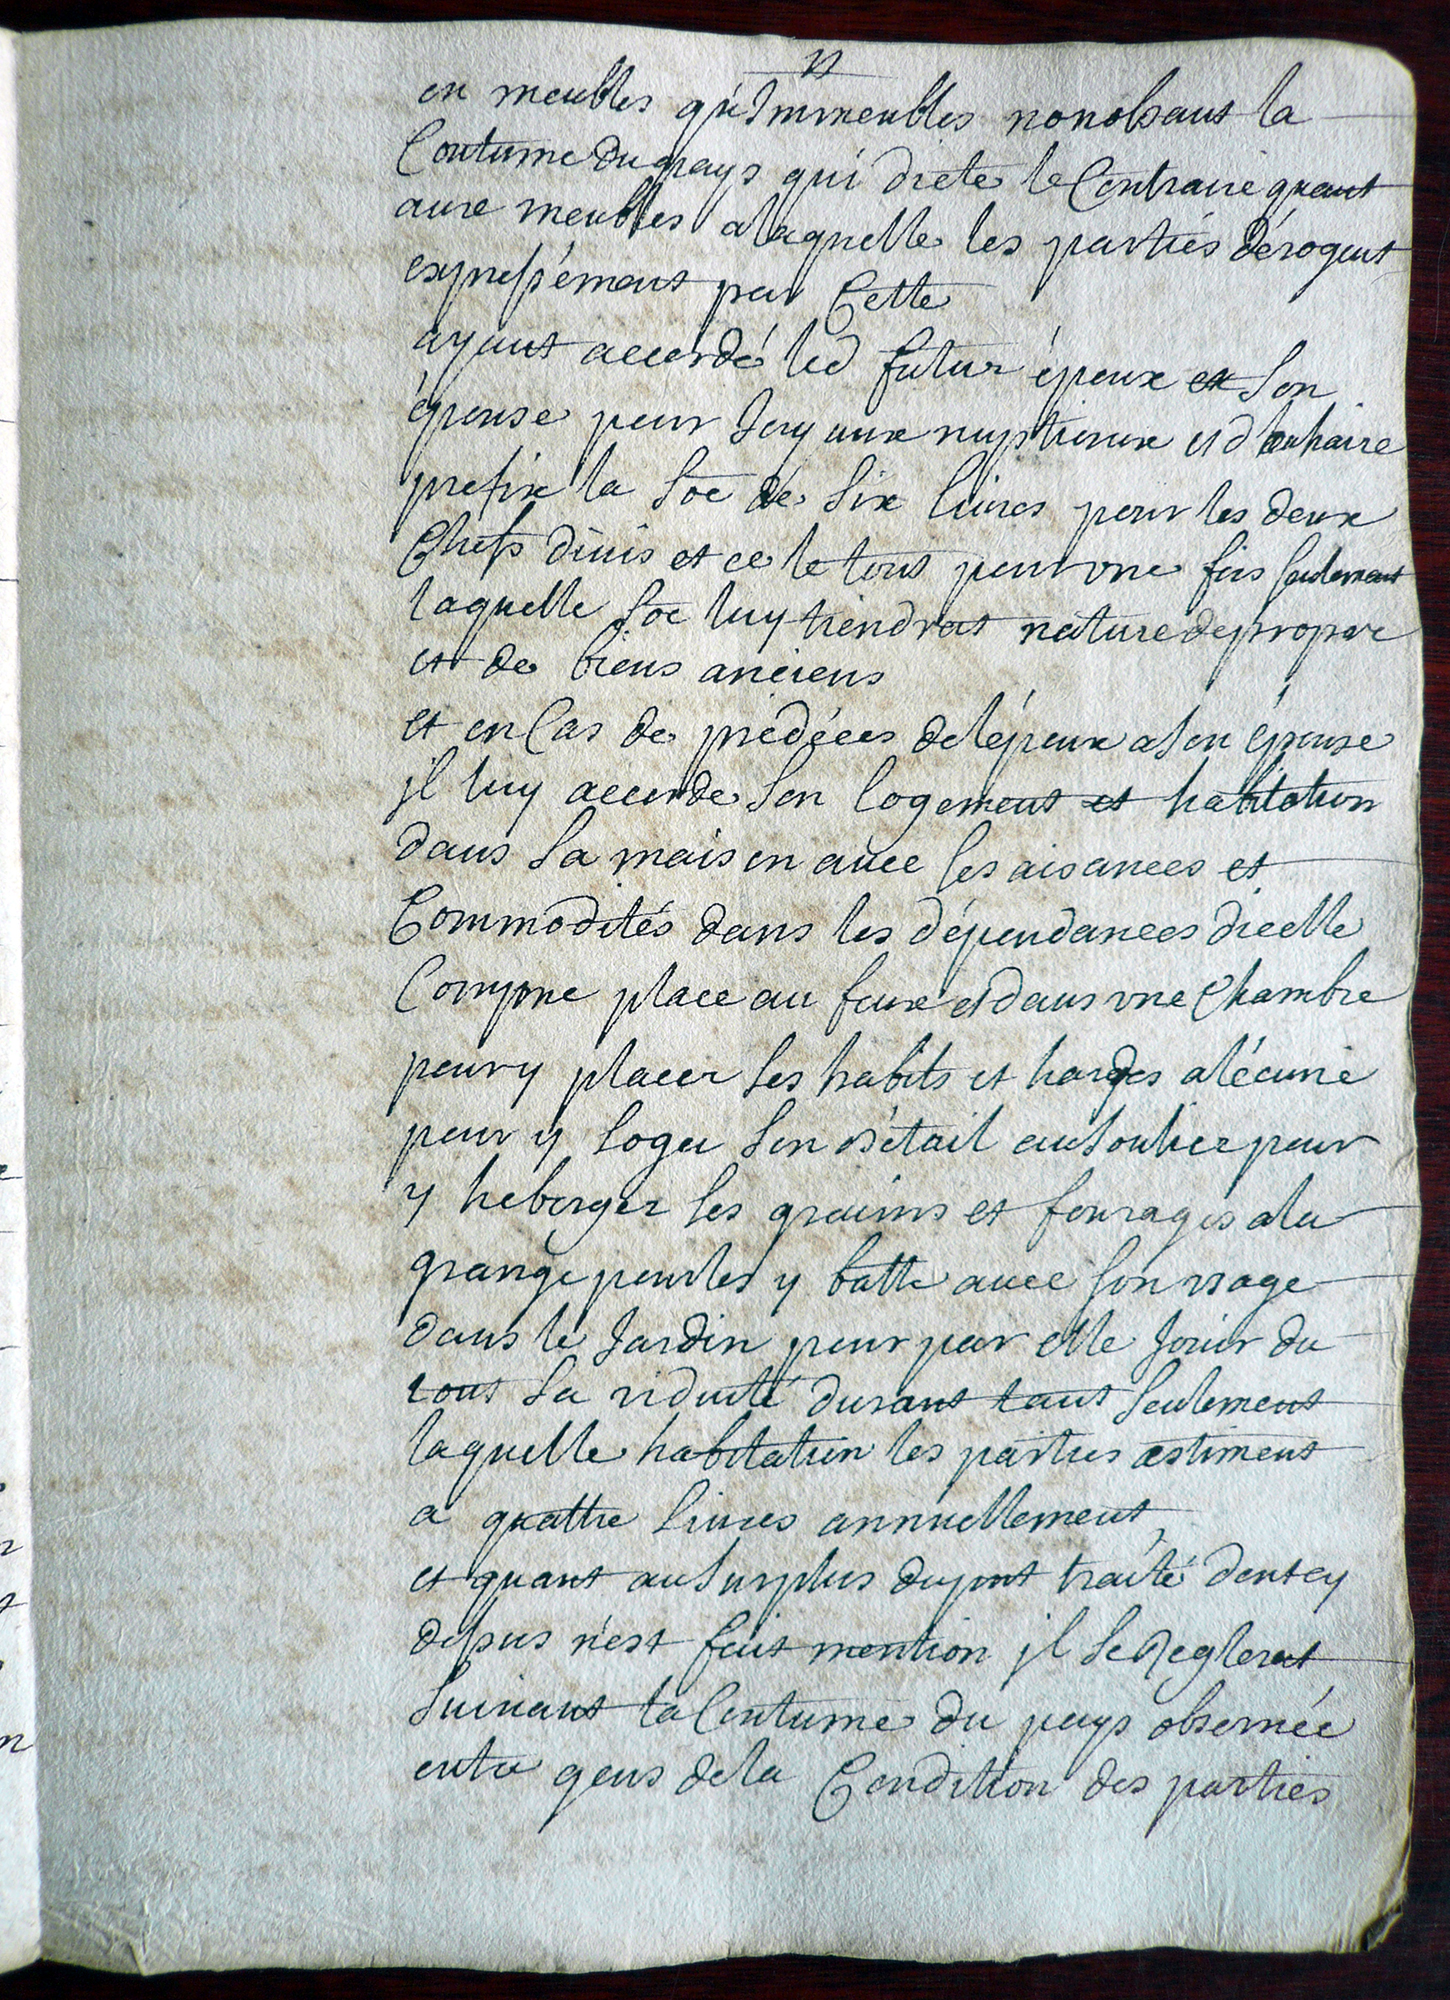 en meubles qu'Immeubles nonobsant la
Coutume du pays qui dicte le Contraire quant
aux meubles a laquelle les parties dérogent
expressément par Cette
ayant accordé led futur époux et son
épouse pour Joyaux nuptieaux et douhaire
prefix la soe de six livres pour les deux
Chefs divis et ce le tout pour une fois seulement
laquelle soe luy tiendrat nature de propre
et de biens anciens
et en Cas de prédéces de l'époux a son épouse
jl luy accorde son logement et habitation
dans sa maison avec ses aisances et
Commodités dans les dépendances dicelle
Comme place au feux et dans une Chambre
pour y placer ses habits et hardes a lécurie
pour y loger son bétail au soulier pour
y heberger ses grains et fourages a la
grange pour les y battre avec son usage
dans le Jardin pour par elle Jouir du
tout sa viduité durant tant seulement
laquelle habitation les parties æstiment
a quattre livres annuellement
et quant au surplus du pnt traité dont cy
dessus n'est fait mention jl se Reglerat
suivant la Coutume du pays observée
entre gens de la Condition des parties